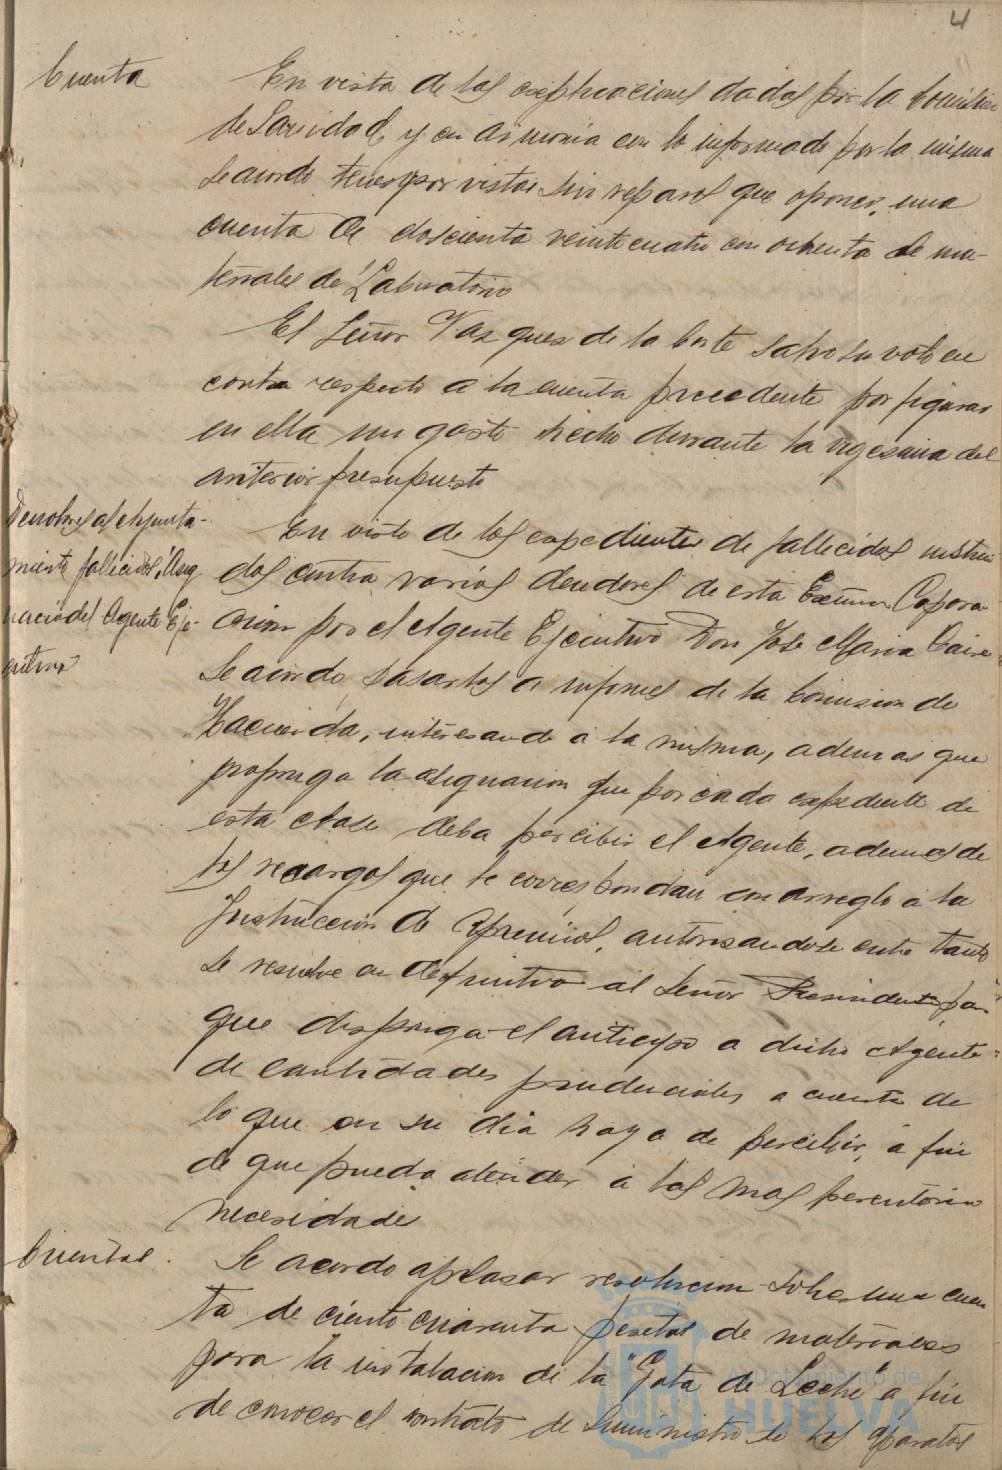 4
Cuenta
En vista de las explicaciones dadas por la Comision
de Sanidad, y en armonia con lo informado por la misma
se acordo tener por vistas sin reparos que oponer, una
cuenta de doscienta veinte cuatro con ochenta de ma-
teriales de Laboratorio
El Señor Vazquez de la Corte salvo su voto en
contra respecto a la cuenta precedente por figurar
en ella un gasto hecho durante la vigencia del
anterior presupuesto
Deudores al Ayunta-
miento fallecidos. Asig
nacion del Agente Eje-
cutivo
En visto de los expedientes de fallecidos instrui-
dos contra varios deudores de esta Excma Copora-
cion por el Agente Ejecutivo Don Jose Maria
Se acordo pasarlos a informes de la Comision de
Hacienda, interesando a la misma, ademas que
proponga la asignacion que por cada expediente de
esta clase deba percibir el Agente, ademas de
los recargos que le correspondan con arreglo a la
Instruccion de Apremios, autorisandose entre tanto
se resuelve en definitiva al Señor Presidente para
que disponga el anticipo a dicho Agente
de cantidades prudenciales a cuenta de
lo que en su dia haya de percibir, a fin
de que pueda atender a las mas perentorias
necesidades
Cuentas.
Se acordo aplasar resolucion sobre una cuen
ta de ciento cuarenta pesetas de materiales
para la instalacion de la "Gota de Leche" a fin
de conocer el contrato de suministro de los aparatos
Ayuntamiento de
HUELVA